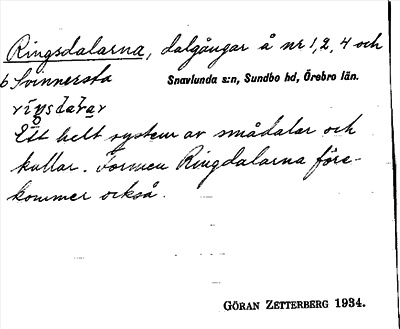 Ringsdalarna, dalgångar å nr 1, 2, 4 och
6 Svinnersta Snavlunda s:n, Sundbo hd, Örebro län.
Ett helt system av smådalar och
kullar. Formen Ringdalarna före-
kommer också.
GÖRAN ZETTERBERG 1934.